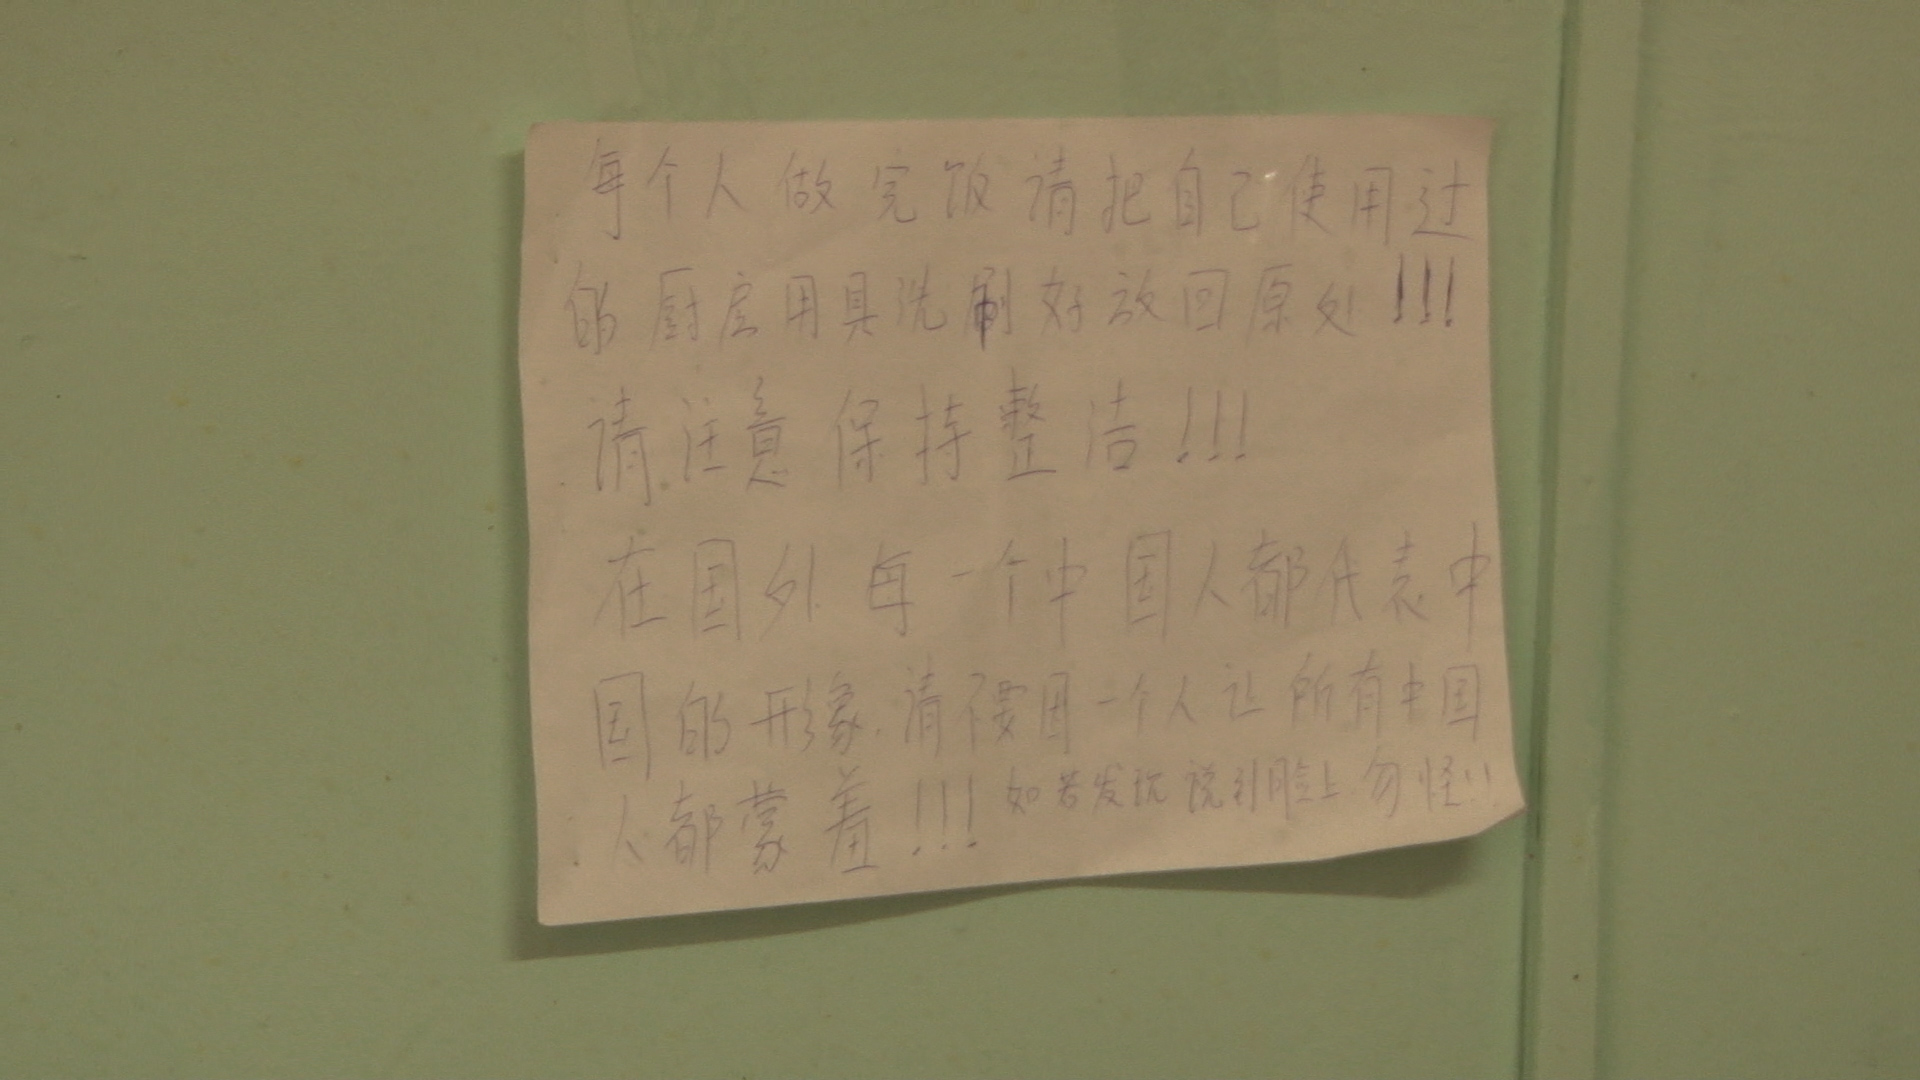 每个人做完饭请把自己使用过
的厨房用具洗刷好放回原处!!!
请注意保持整洁!!!
在国外每一个中国人都代表中
国的形象.请不要因一个人让所有中国
人都蒙羞!!! 如若发现说到脸上.勿怪!!